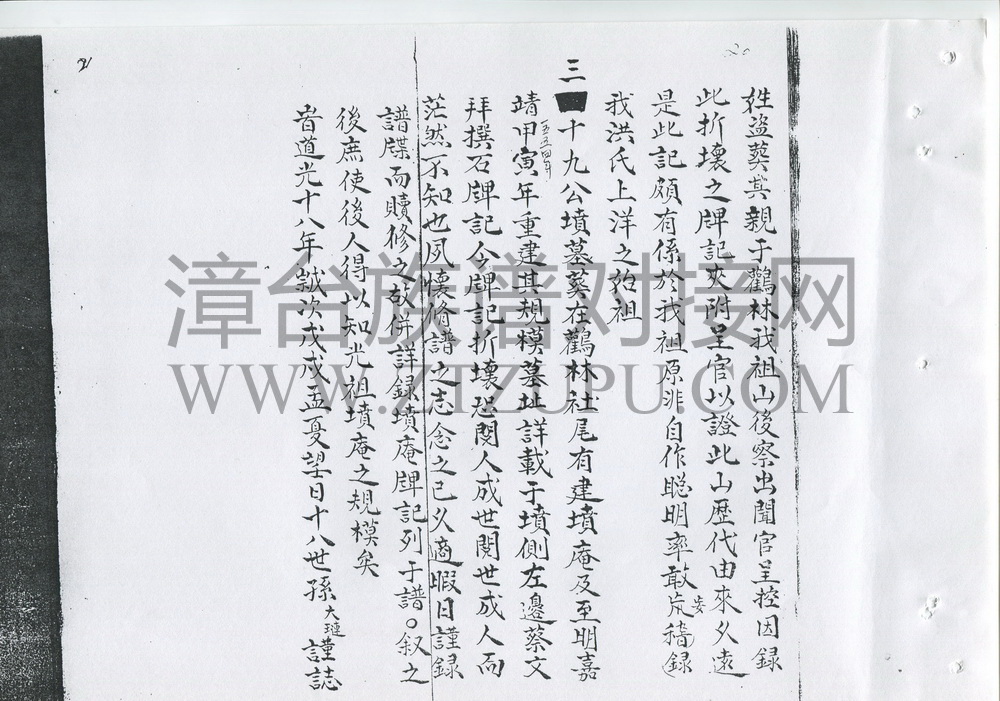 姓盗葬其親于鸛林我祖山後察出聞官呈控因録
此折壞之牌記夾附呈官以證此山歷代由來久遠
是此記頗有係於我祖原非自作聪明率敢妄穡録
我洪氏上洋之始祖
三十九公墳墓葬在鸛林社尾有建墳庵及至明嘉
靖甲寅年重建其規模墓址詳載于墳側左邊蔡文
一五五四年
拜撰石牌記今牌記折壞恐閱人成世閱世成人而
茫然不知也夙懷脩譜之志念之已久適暇日謹録
譜牒而贖修之敍併詳録墳庵牌記列于譜。叙之
後庶使後人得以知光祖墳庵之規模矣
旹道光十八年歲次戊戌孟夏望日十八世孫大 謹誌
漳台族谱对接网
WWW.ZTZUPU.COM
20
21